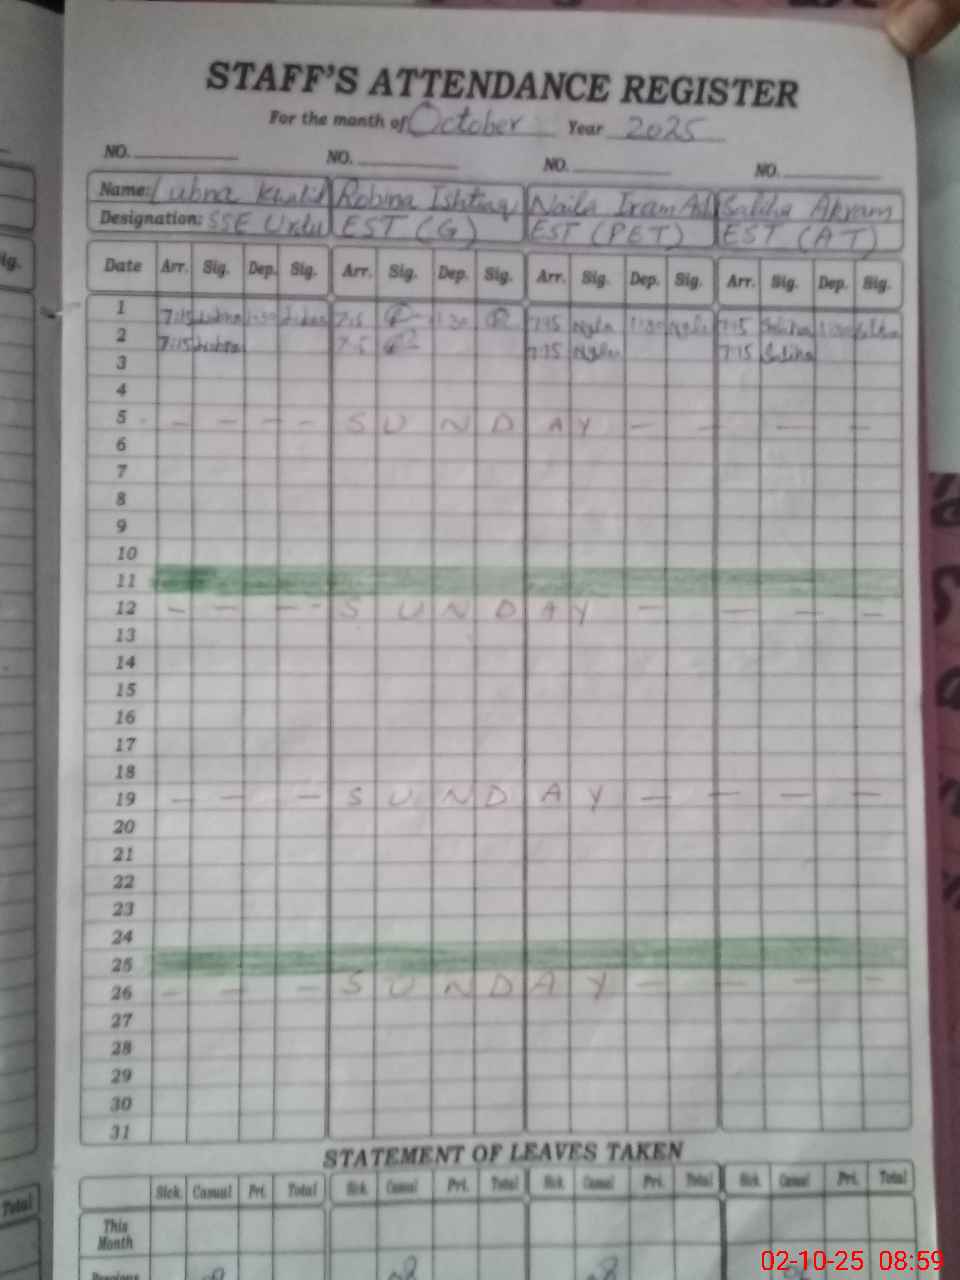 STAFF'S ATTENDANCE REGISTER
For the month of October Year 2025
NO. NO. NO. NO.
Name: Lubna Khalid Robina Ishtiaq Naila Iram Saliha Akram
Designation: SSE Urdu EST (G) EST (PET) EST (AT)
Date Arr. Sig. Dep. Sig. Arr. Sig. Dep. Sig. Arr. Sig. Dep. Sig. Arr. Sig. Dep. Sig.
1 7:15 Lubna 1:30 Lubna 7:15 1:30 7:15 Naila 1:30 Naila 7:15 Saliha 1:30 Saliha
2 7:15 Lubna 7:15 7:15 Naila 7:15 Saliha
3
4
5 - - - - - S U N D A Y - - - -
6
7
8
9
10
11
12 - - - - S U N D A Y - - - -
13
14
15
16
17
18
19 - - - S U N D A Y - - - -
20
21
22
23
24
25
26 - - - S U N D A Y - - - -
27
28
29
30
31
STATEMENT OF LEAVES TAKEN
Sick. Casual Pri. Total Sick. Casual Pri. Total Sick. Casual Pri. Total Sick. Casual Pri. Total
This
Month
Previous
02-10-25 08:59
ig.
Sig.
Total